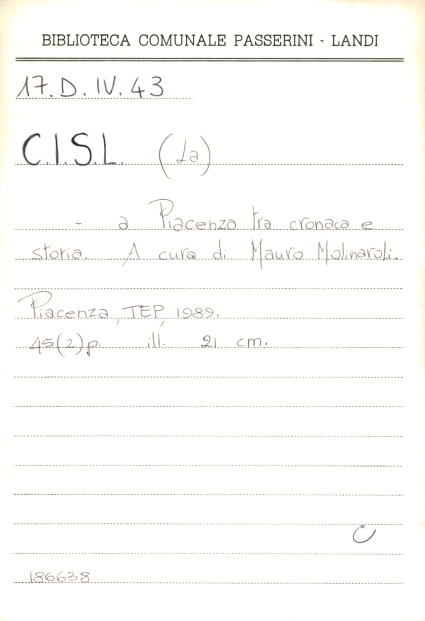 BIBLIOTECA COMUNALE PASSERINI - LANDI
17.D.IV.43
C.I.S.L. (La)
- a Piacenza tra cronaca e
storia. A cura di Mauro Molinaroli.
Piacenza, TEP, 1989.
45(2)p. ill. 21 cm.
186638